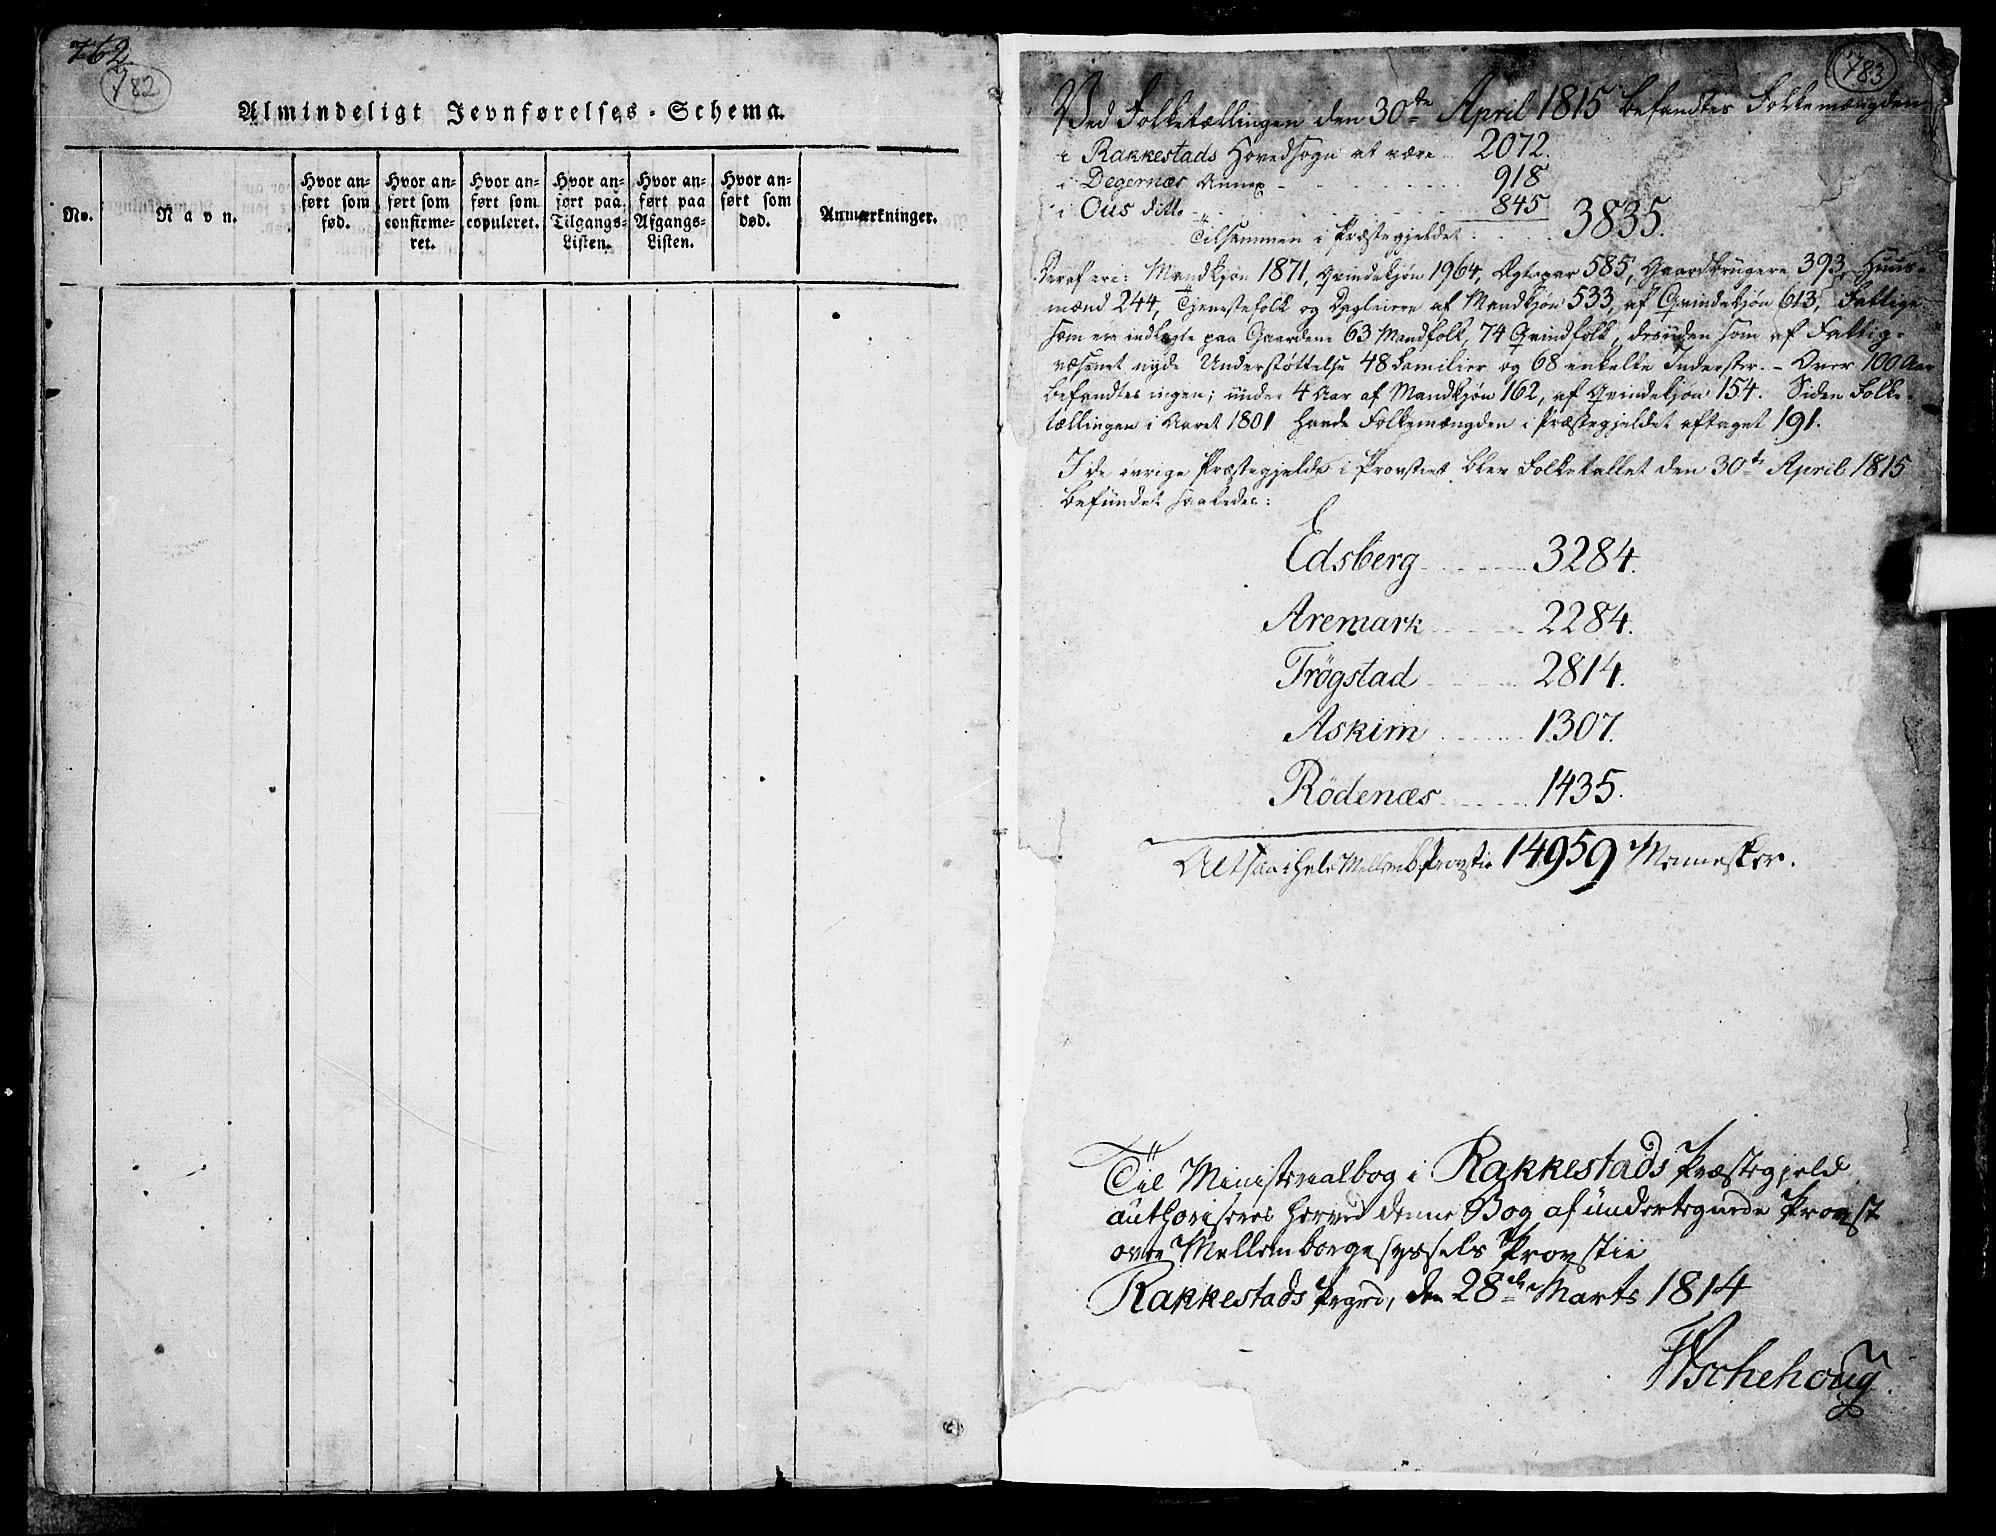 762.
782
Almindeligt Jevnførelses-Schema.
No.
Navn.
Hvor an-
ført som
fød.
Hvor an-
ført som
confirme-
ret.
Hvor an-
ført som
copuleret.
Hvor an-
ført paa
Tilgangs-
Listen.
Hvor an-
ført paa
Afgangs-
Listen.
Hvor an-
ført som
død.
Anmærkninger.
783
Ved Folketællingen den 30de April 1815 befandtes Folkemængden
i Rakkestads Hovedsogn at være 2072.
i Degernæs Annex 918
i Ous ditto 845
Tilsammen i Præstegjeldet 3835.
Deraf ere: Mandkjøn 1871, Qvindekjøn 1964, Ægtepar 585, Gaardbrügere 393, Huus-
mænd 244, Tjenestefolk og Dagleiere af Mandkjøn 533, af Qvindekjøn 613, Fattige
som ere indlagte paa Gaardene 63 Mandfolk, 74 Qvindfolk, desüden som af Fattig-
væsenet nyde Understøttelse 48 Familier og 68 enkelte Inderster. - Over 100 Aar
befandtes ingen; ünder 4 Aar af Mandkjøn 162, af Qvindekjøn 154. Siden Folke-
tællingen i Aaret 1801 havde Folkemængden i Præstegjeldet aftaget 191.
I de øvrige Præstegjelde i Provstiet blev Folketallet den 30te April 1815
befündet saaledes:
Edsberg 3284.
Aremark 2284.
Trögstad 2814.
Askim 1307.
Rödenæs 1435.
Altsaa i hele Mellemb. Provstie 14959 Mennesker.
Til Ministerialbog i Rakkestads Præstegjeld
authoriseres herved denne Bog af ündertegnede Provst
over Mellemborgesyssels Provstie
Rakkestads Prgrd, den 28de Marts 1814
Schehoug